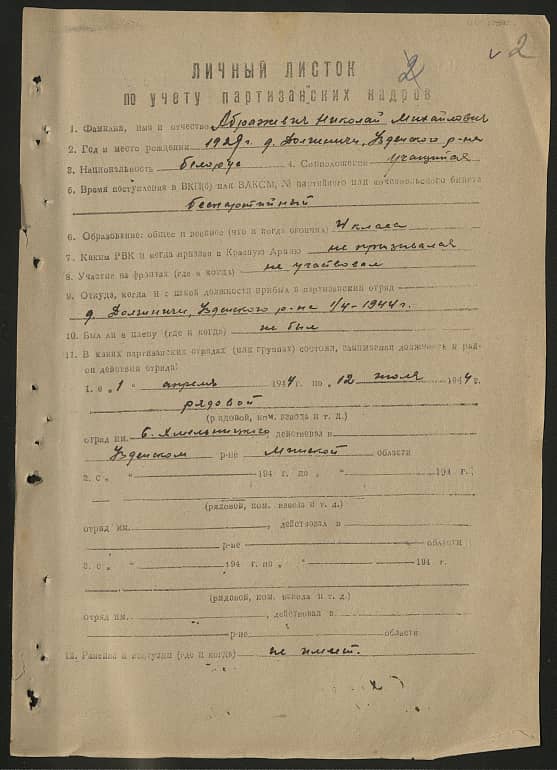 2
2
ЛИЧНЫЙ ЛИСТОК
по учету партизанских кадров
1. Фамилия, имя и отчество Абрамсевич Николай Михайлович
2. Год и место рождения 1929 г. д. Долгиничи, Узденского р-на
3. Национальность белорус 4. Соцположение учащийся
5. Время поступления в ВКП(б) или ВЛКСМ, № партийного или комсомольского билета
беспартийный
6. Образование: общее и военное (что и когда окончил) 4 класса
7. Каким РВК и когда призван в Красную Армию не призывался
8. Участие на фронтах (где и когда) не участвовал
9. Откуда, когда и с какой должности прибыл в партизанский отряд
д. Долгиничи, Узденского р-на 1/4-1944 г.
10. Был ли в плену (где и когда) не был
11. В каких партизанских отрядах (или группах) состоял, занимаемая должность и рай-
он действия отряда:
1. с „1“ апрель 1944 г. по „12“ июля 1944 г.
рядовой
(рядовой, ком. взвода и т. д.)
отряд им. Б. Хмельницкого действовал в
Узденском р-не Минской области
2. с „ “ 194 г. по „ “ 194 г.
(рядовой, ком. взвода и т. д.)
отряд им. , действовал в
р-не области
3. с „ “ 194 г. по „ “ 194 г.
(рядовой, ком. взвода и т. д.)
отряд им. , действовал в
р-не области
12. Ранения и контузии (где и когда) не имеет.